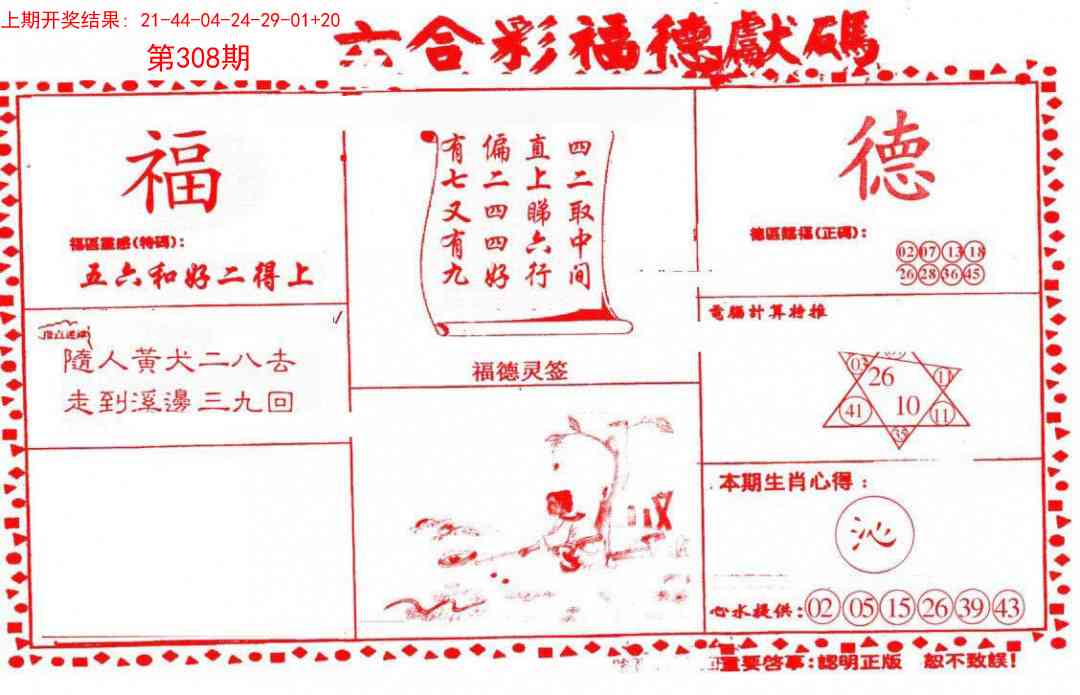 上期开奖结果：21-44-04-24-29-01+20
第308期
六合彩福德獻碼
福
福區靈感(特碼)：
五六和好二得上
隨人黃犬二八去
走到溪邊三九回
四二取中间
直上睇六行
偏二四四好
有七又有九
福德灵签
德
德區賜福(正碼)：
02 07 13 18
26 28 36 45
電腦計算特推
03
26
11
41
10
11
本期生肖心得：
沁
心水提供：02 05 15 26 39 43
重要啓事：認明正版 恕不致誤！